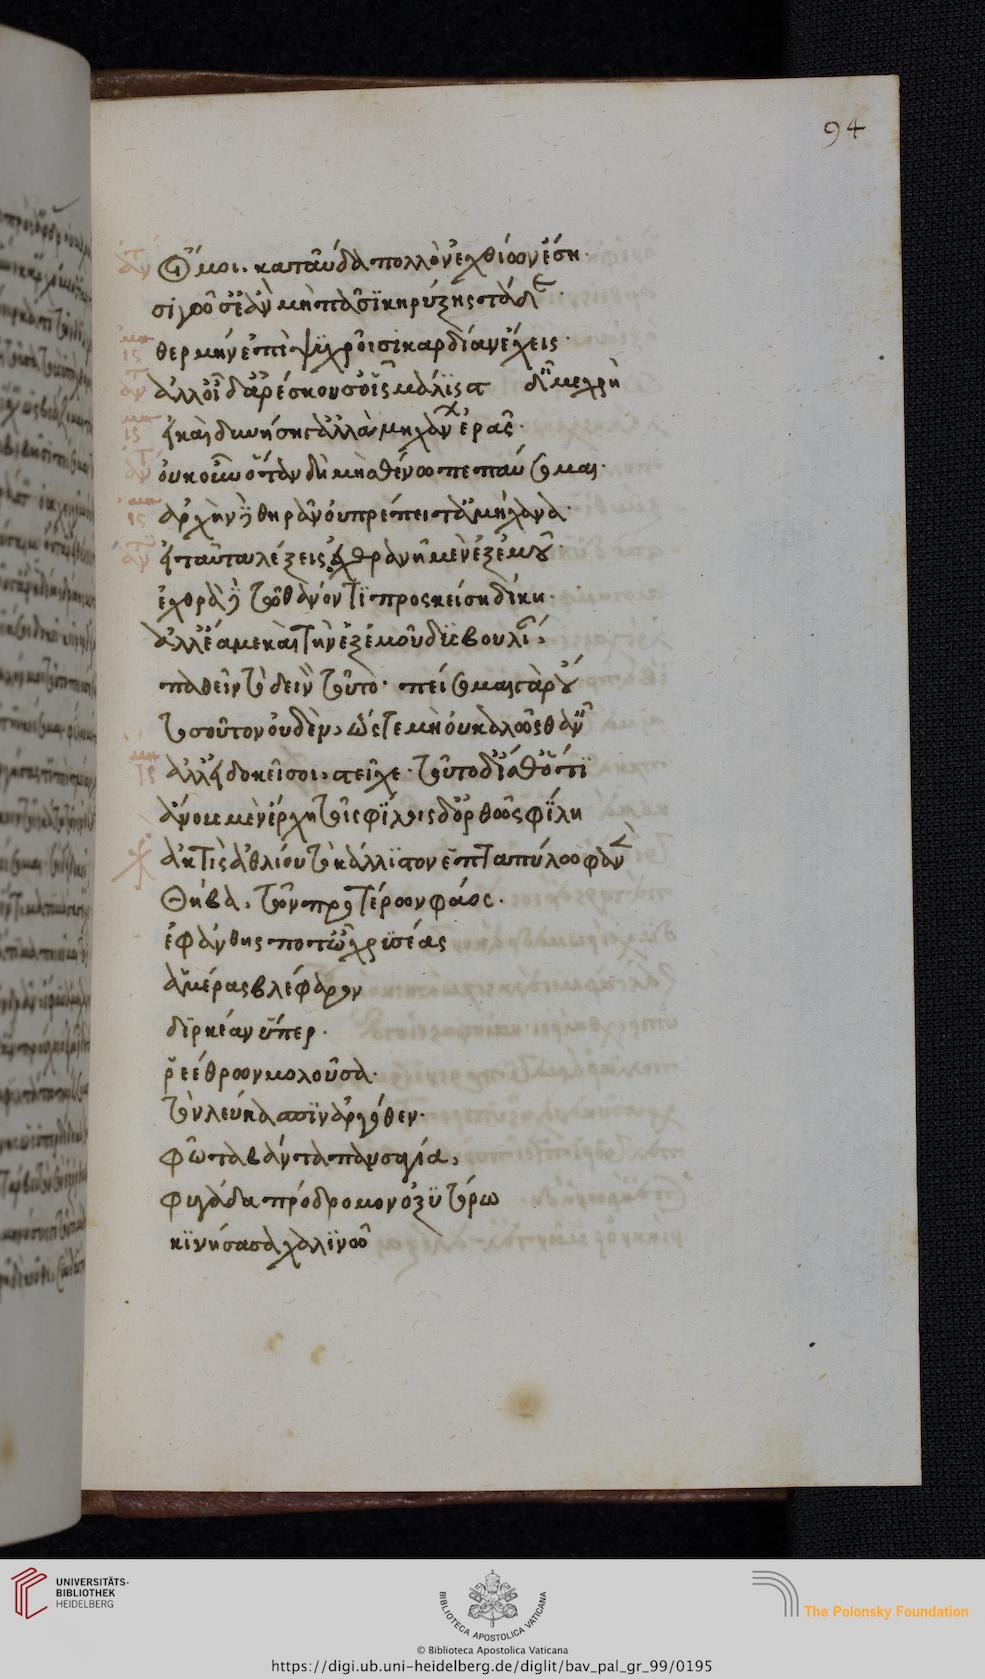 94
ἀν ὤμοι. καταύδα πολλὸν ἐχθίων ἔση·
σιγῶσ' ἐὰν μὴ πᾶσι κηρύξης τάδε·
ισμ θερμὴν ἐπὶ ψυχροῖσι καρδίαν ἔχεις·
ἀντ ἀλλ' οἶδ' ἀρέσκουσ' οἷς μάλιστα δεῖ με χρὴ
ισμ εἰ καὶ δυνήση γ' ἀλλ' ἀμηχάνων ἐρᾷς·
ἀντ οὐκοῦν ὅταν δὴ μὴ σθένω πεπαύσομαι·
ισμ ἀρχὴν δὲ θηρᾶν οὐ πρέπει τἀμήχανα·
ἀντ εἰ ταῦτα λέξεις ἐχθρανῆ μὲν ἐξ ἐμοῦ·
ἐχθρὰ δὲ τῷ θανόντι προσκείση δίκη·
ἀλλ' ἔα με καὶ τὴν ἐξ ἐμοῦ δυσβουλίαν
παθεῖν τὸ δεινὸν τοῦτο· πείσομαι γὰρ οὐ
τοσοῦτον οὐδὲν, ὥστε μὴ οὐ καλῶς θανεῖν
ισμ ἀλλ' εἰ δοκεῖ σοι, στεῖχε· τοῦτο δ' ἴσθ' ὅτι
ἄνους μὲν ἔρχη τοῖς φίλοις δ' ὀρθῶς φίλη
χ ἀκτὶς ἀελίου τὸ κάλλιστον ἑπταπύλω φανὲν
Θήβα, τῶν προτέρων φάος·
ἐφάνθης ποτ' ὦ χρυσέας
ἁμέρας βλέφαρον
διρκέαν ὕπερ·
ῥεέθρων μολοῦσα·
τὸν λεύκασπιν ἀργόθεν·
φῶτα βάντα πανσαγία,
φυγάδα πρόδρομον ὀξυτόρω
κινήσασα χαλινῷ
UNIVERSITÄTS-
BIBLIOTHEK
HEIDELBERG
BIBLIOTECA APOSTOLICA VATICANA
The Polonsky Foundation
© Biblioteca Apostolica Vaticana
https://digi.ub.uni-heidelberg.de/diglit/bav_pal_gr_99/0195